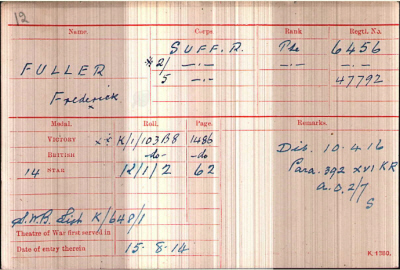 12
Name. Corps. Rank Regtl. No.
SUFF. R. Pte 6456
FULLER *2/ —·— —·— —·—
5 —·— 47792
Frederick
Medal. Roll. Page. Remarks.
VICTORY ** K/1/103B8 1486
BRITISH -do- -do
14 STAR K/1/2 62
Dis. 10.4.16
Para. 392 XVI KR
A.O. 2/7
S
S.W.B. List K/648/1
Theatre of War first served in
Date of entry therein 15-8-14
K. 1380.